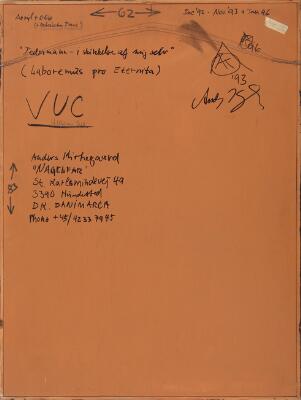 ← 62 →
Dec '92 - Nov '93 + Jan 96
"Jedermann - i skikkelse af mig selv"
(Laboremus pro Eternita)
96
93
VUC
Anders Kirkegaard
"NAGELFAR"
St. Karlsmindevej 49
3390 Hundested
DK. DANIMARCA
Phone +45/4233 7945
83